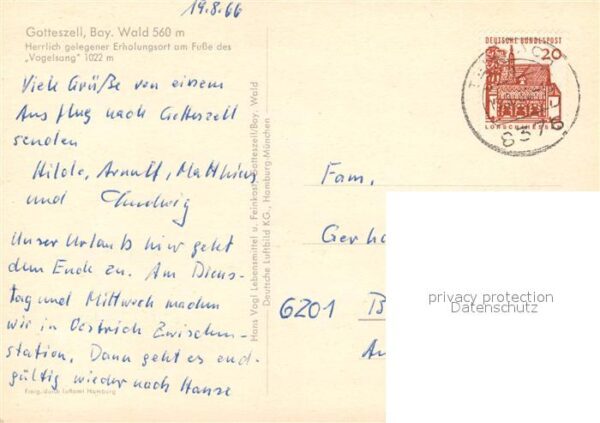 19.8.66
Gotteszell, Bay. Wald 560 m
Herrlich gelegener Erholungsort am Fuße des
„Vogelsang" 1022 m
Viele Grüße von einem
Ausflug nach Gotteszell
senden
Hilde, Arnulf, Matthias
und Ludwig
Unser Urlaub hier geht
dem Ende zu. Am Diens-
tag und Mittwoch machen
wir in Oestrich Zwischen-
station. Dann geht es end-
gültig wieder nach Hause
Freig. durch Luftamt Hamburg
Hans Vogl Lebensmittel u. Feinkost, Gotteszell/Bay. Wald
Deutsche Luftbild KG., Hamburg-München
DEUTSCHE BUNDESPOST
20
LORSCH/HESSEN
8376
Fam.
Gerha
6201 B
An
privacy protection
Datenschutz